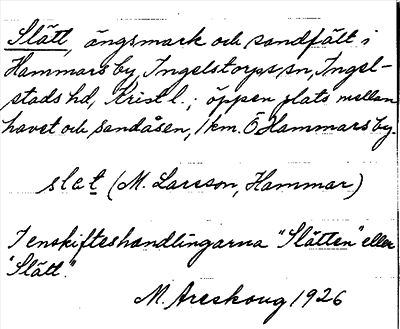 Slätt, ängsmark och sandfält i
Hammars by, Ingelstorps sn, Ingel-
stads hd, Krist l.; öppen plats mellan
havet och sandåsen, 1 km. Ö Hammars by.
slat (M. Larsson, Hammar)
I enskifteshandlingarna "Slätten" eller
"Slätt".
M. Areskoug 1926